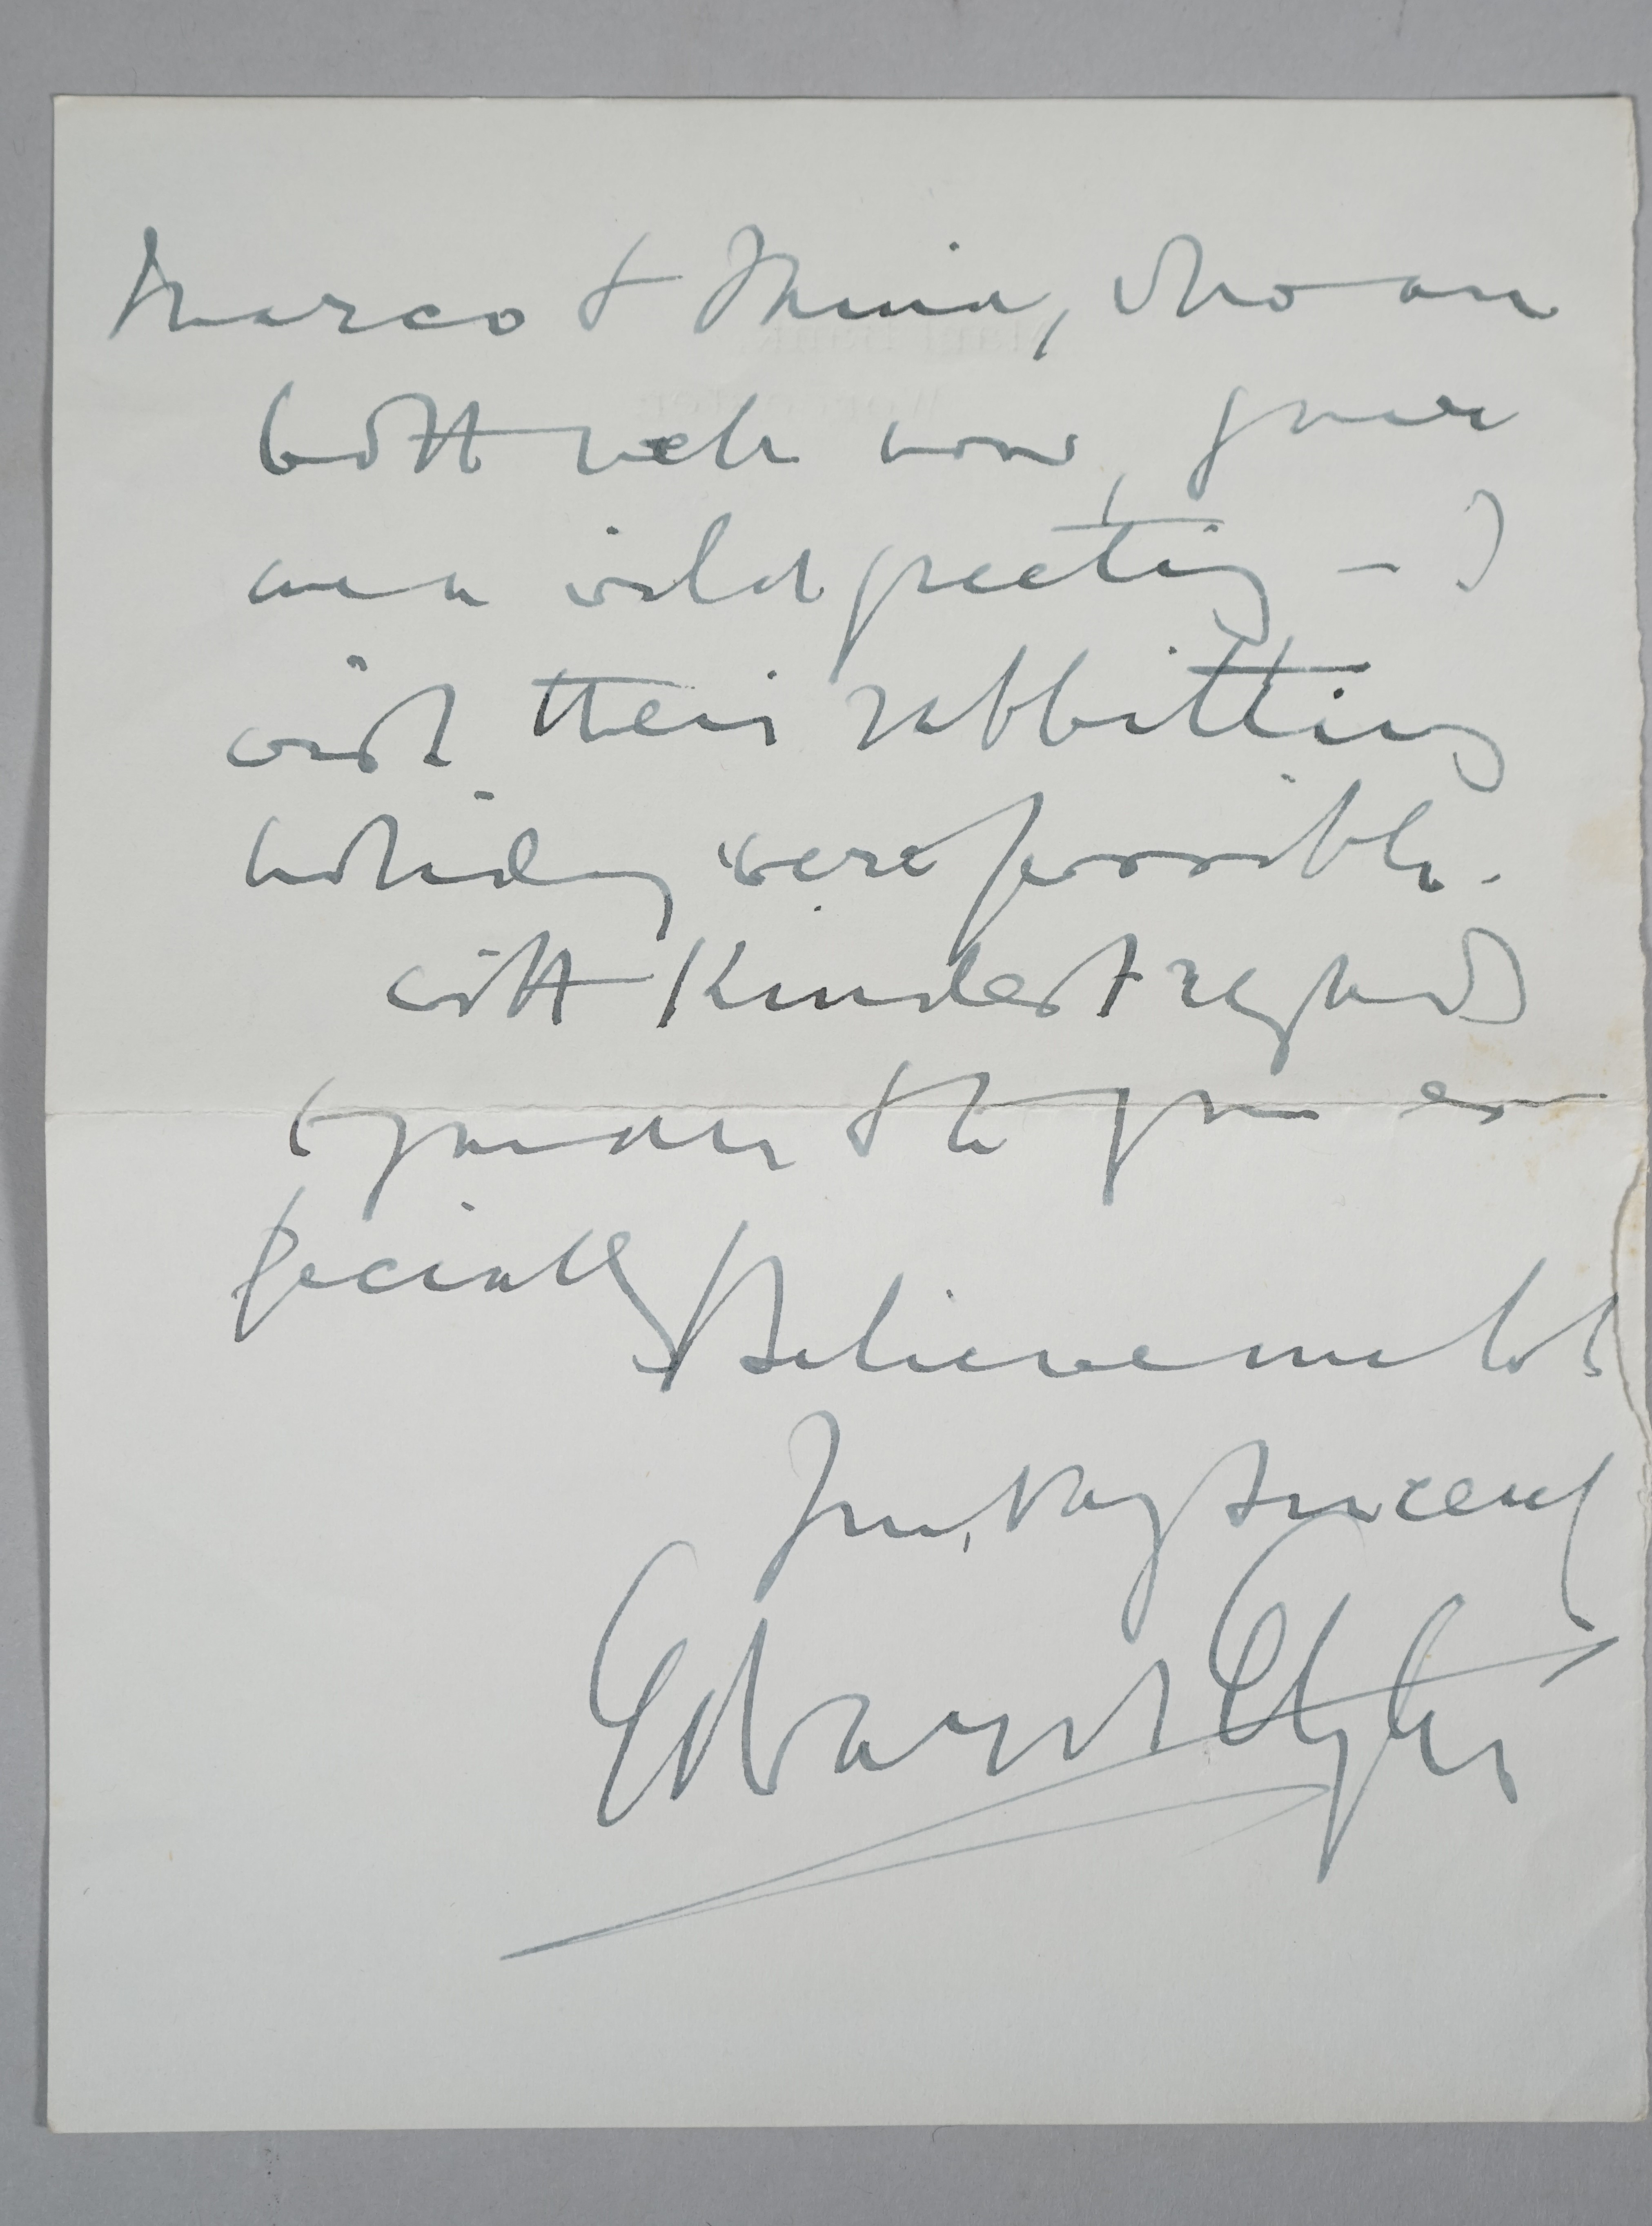 Marco & Mina, who are
both well now, give
me a wild greeting – I
wish their rabbitting
holiday were possible.
with kindest regards
to you all & to you es-
pecially
Believe me to be
Yours very sincerely
Edward Elgar